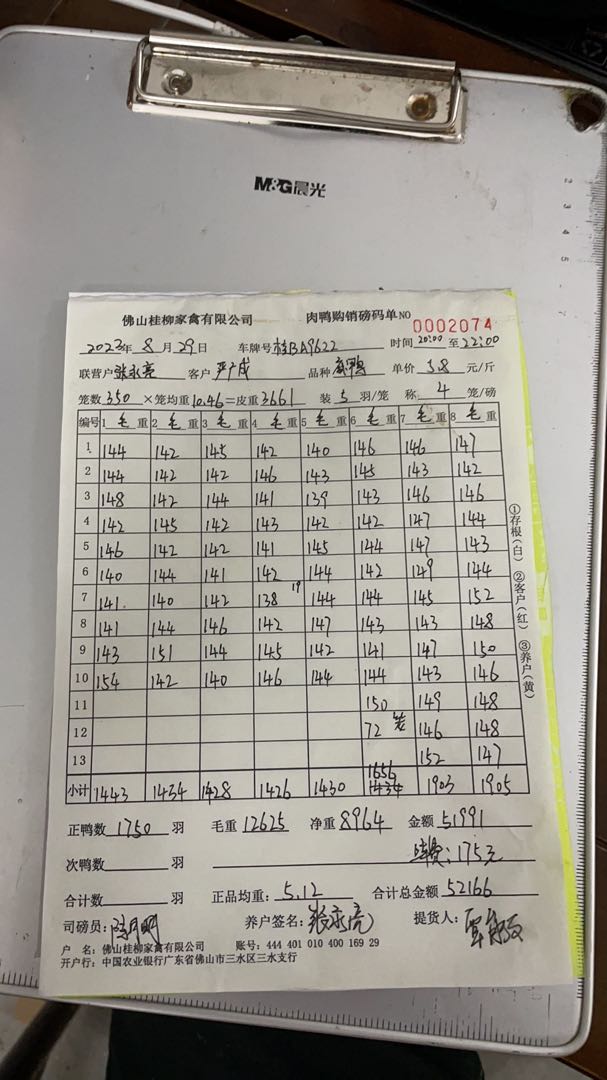 M&G晨光
佛山桂柳家禽有限公司 肉鸭购销磅码单NO 0002074
2023年8月29日 车牌号桂BA9622 时间20:00至22:00
联营户张永亮 客户 严广成 品种 单价 5.8 元/斤
笼数 350 ×笼均重10.46=皮重3661 装 5 羽/笼 称 4 笼/磅
编号 1 毛 重 2 毛 重 3 毛 重 4 毛 重 5 毛 重 6 毛 重 7 毛 重 8 毛 重
1 144 142 145 142 140 146 146 147
2 144 142 142 146 143 145 143 142
3 148 142 144 141 139 143 146 146
4 142 145 142 143 142 142 147 144
5 146 142 142 141 145 144 147 143
6 140 144 141 142 144 142 149 144
7 141 140 142 138 19 144 144 145 152
8 141 144 146 142 147 143 143 148
9 143 151 144 145 142 141 147 150
10 154 142 140 146 144 144 143 146
11 150 149 148
12 72 笼 146 148
13 152 147
小计 1443 1434 1428 1426 1430 1656 1434 1903 1905
①存根(白) ②客户(红) ③养户(黄)
正鸭数 1750 羽 毛重 12625 净重 8964 金额 51991
次鸭数 羽 费:175元
合计数 羽 正品均重:5.12 合计总金额 52166
司磅员: 养户签名:张永亮 提货人:
户 名:佛山桂柳家禽有限公司 账号:444 401 010 400 169 29
开户行:中国农业银行广东省佛山市三水区三水支行